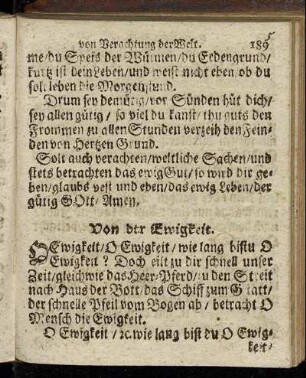 von Verachtung der Welt. 189
me/du Speis der Würmen/du Erdengrund/
kurtz ist dein Leben/und weist nicht eben ob du
solt leben die Morgenstund.
Drum sey demütig/vor Sünden hüt dich/
sey allen gütig/ so viel du kanst/thu guts den
Frommen zu allen Stunden verzeih den Fein-
den von Hertzen Grund.
Solt auch verachten/weltliche Sachen/und
stets betrachten das ewig Gut/so wird dir ge-
ben/glaubs vest und eben/das ewig Leben/der
gütig GOtt/Amen.
Von der Ewigkeit.
O Ewigkeit/O Ewigkeit/wie lang bistu O
Ewigkeit? Doch eilt zu dir schnell unser
Zeit/gleichwie das Heer-Pferd/zu den Streit
nach Haus der Bott/das Schiff zum Gstatt/
der schnelle Pfeil vom Bogen ab/ betracht O
Mensch die Ewigkeit.
O Ewigkeit/ ꝛc. wie lang bist du O Ewig-
keit/